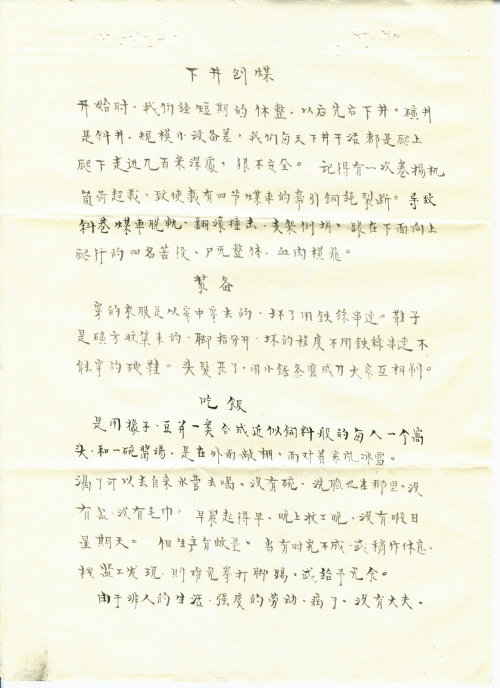 下井刨煤
开始时，我们经短期的休整，以后先后下井。矿井
是斜井，规模小设备差，我们每天下井干活都是爬上
爬下走进几百米深处，很不安全。 记得有一次卷扬机
负荷超载，致使载有四节煤车的牵引钢绳裂断。导致
斜巷煤车脱轨，翻滚撞击，支架倒塌，跟在下面向上
爬行的四名苦役，尸无整体，血肉横飞。
装备
穿的衣服是以家中穿去的，坏了用铁丝串连。鞋子
是矿方收集来的，脚指分开，坏的程度不用铁丝串连不
能穿的破鞋。头发长了，用小锯条磨成刀大家互相剃。
吃饭
是用橡子、豆并一类合成近似饲料般的每人一个窝
头，和一碗酱汤，是在外面敞棚，面对着寒风冰雪。
渴了可以去自来水管去喝，没有碗，洗脸也在那里，没
有盆，没有毛巾。早晨起得早，晚上收工晚，没有假日
星期天。 但生产有数量。当有时完不成，或稍作休息，
被监工发现，则难免拳打脚踢，或给予克食。
由于非人的生活，强度的劳动，病了，没有大夫。